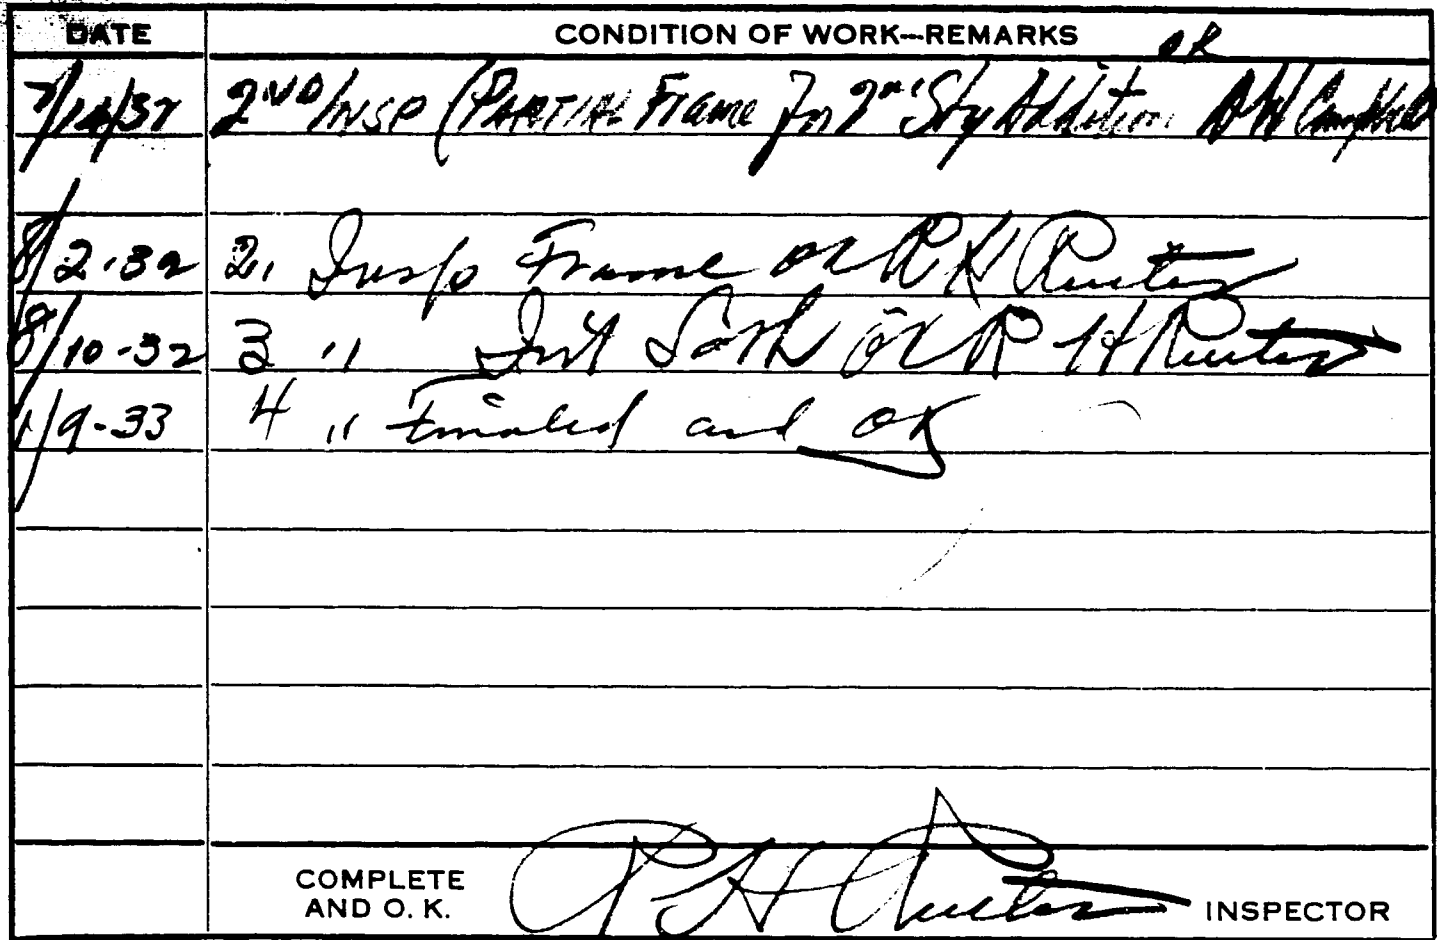 DATE CONDITION OF WORK—REMARKS OK
2ND INSP (PARTIAL Frame For 2nd Sty Addition
8/2-32 2, Insp Frame OK R H
8/10-32 3 " Int Lath OK R H
1/9-33 4 " Finaled and OK
COMPLETE
AND O. K. R H INSPECTOR